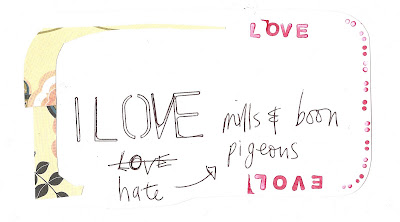 LOVE
I LOVE mills & boon
LOVE pigeons
hate
LOVE